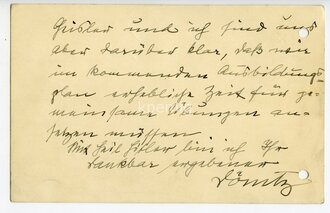 Geisler und ich sind uns
aber darüber klar, daß wir
im kommenden Ausbildungs
plan erhebliche Zeit für ge-
meinsame Übungen an-
setzen müssen
Mit Heil Hitler bin ich Ihr
dankbar ergebener
Dönitz